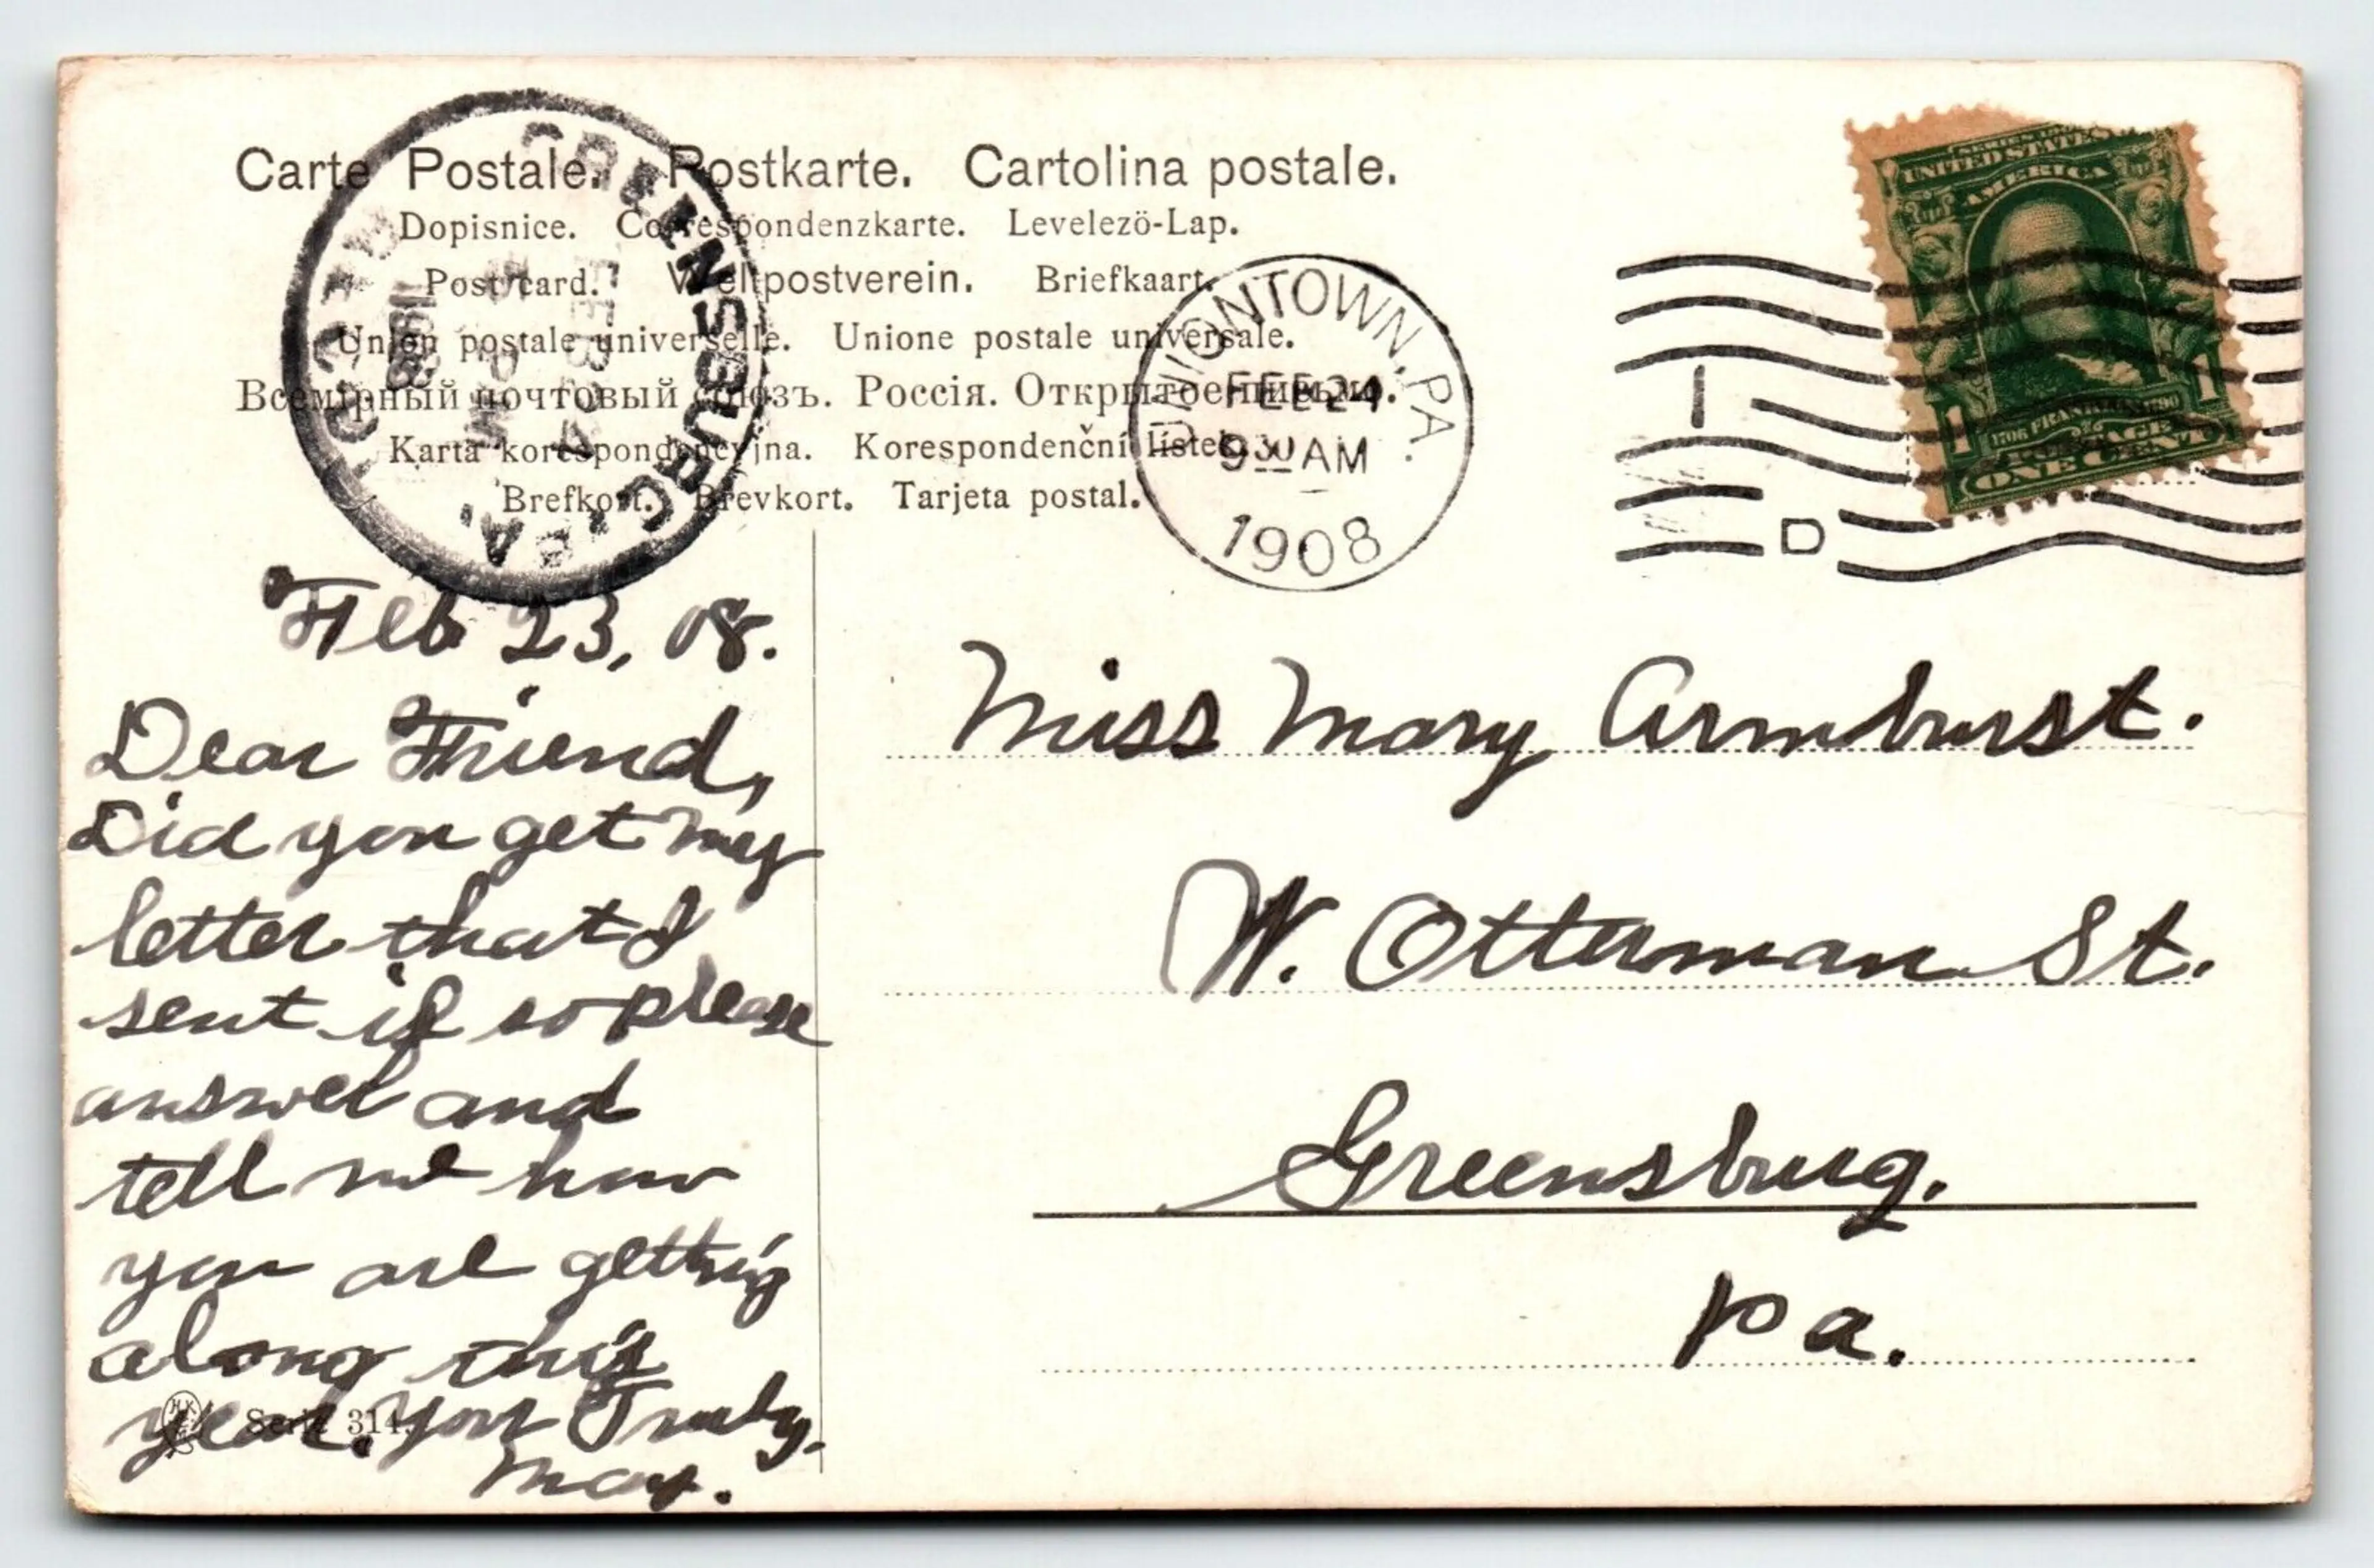 Carte Postale. Postkarte. Cartolina postale.
Dopisnice. Correspondenzkarte. Levelezö-Lap.
Post card. Weltpostverein. Briefkaart.
Union postale universelle. Unione postale universale.
Всемірный почтовый союзъ. Россія. Открытое письмо.
Karta korespondencyjna. Korespondenční lístek.
Brefkort. Brevkort. Tarjeta postal.
GREENSBURG, PA.
FEB 24
1908
REC'D
UNIONTOWN, PA.
FEB 24
9 30 AM
1908
1
D
SERIES 1902
UNITED STATES OF
AMERICA
1706 FRANKLIN 1790
POSTAGE
1 1
ONE CENT
Feb 23, 08.
Dear Friend,
Did you get my
letter that I
sent if so please
answer and
tell me how
you are getting
along this
year. Your Truly.
May.
Serie 314.
Miss Mary Armburst.
W. Otterman St.
Greensburg.
Pa.